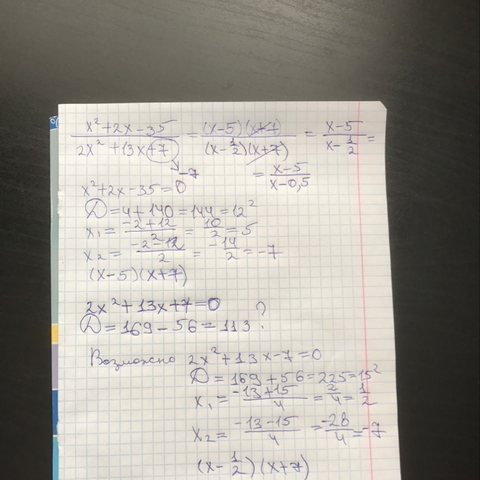 (x²+2x-35)/(2x²+13x+7) = ((x-5)(x+7))/((x-1/2)(x+7)) = (x-5)/(x-1/2) =
→ -7
= (x-5)/(x-0,5)
x²+2x-35=0
D=4+140=144=12²
x₁ = (-2+12)/2 = 10/2 = 5
x₂ = (-2-12)/2 = -14/2 = -7
(x-5)(x+7)
2x²+13x+7=0
D=169-56=113 ?
Возможно 2x²+13x-7=0
D=169+56=225=15²
x₁ = (-13+15)/4 = 2/4 = 1/2
x₂ = (-13-15)/4 = -28/4 = -7
(x-1/2)(x+7)